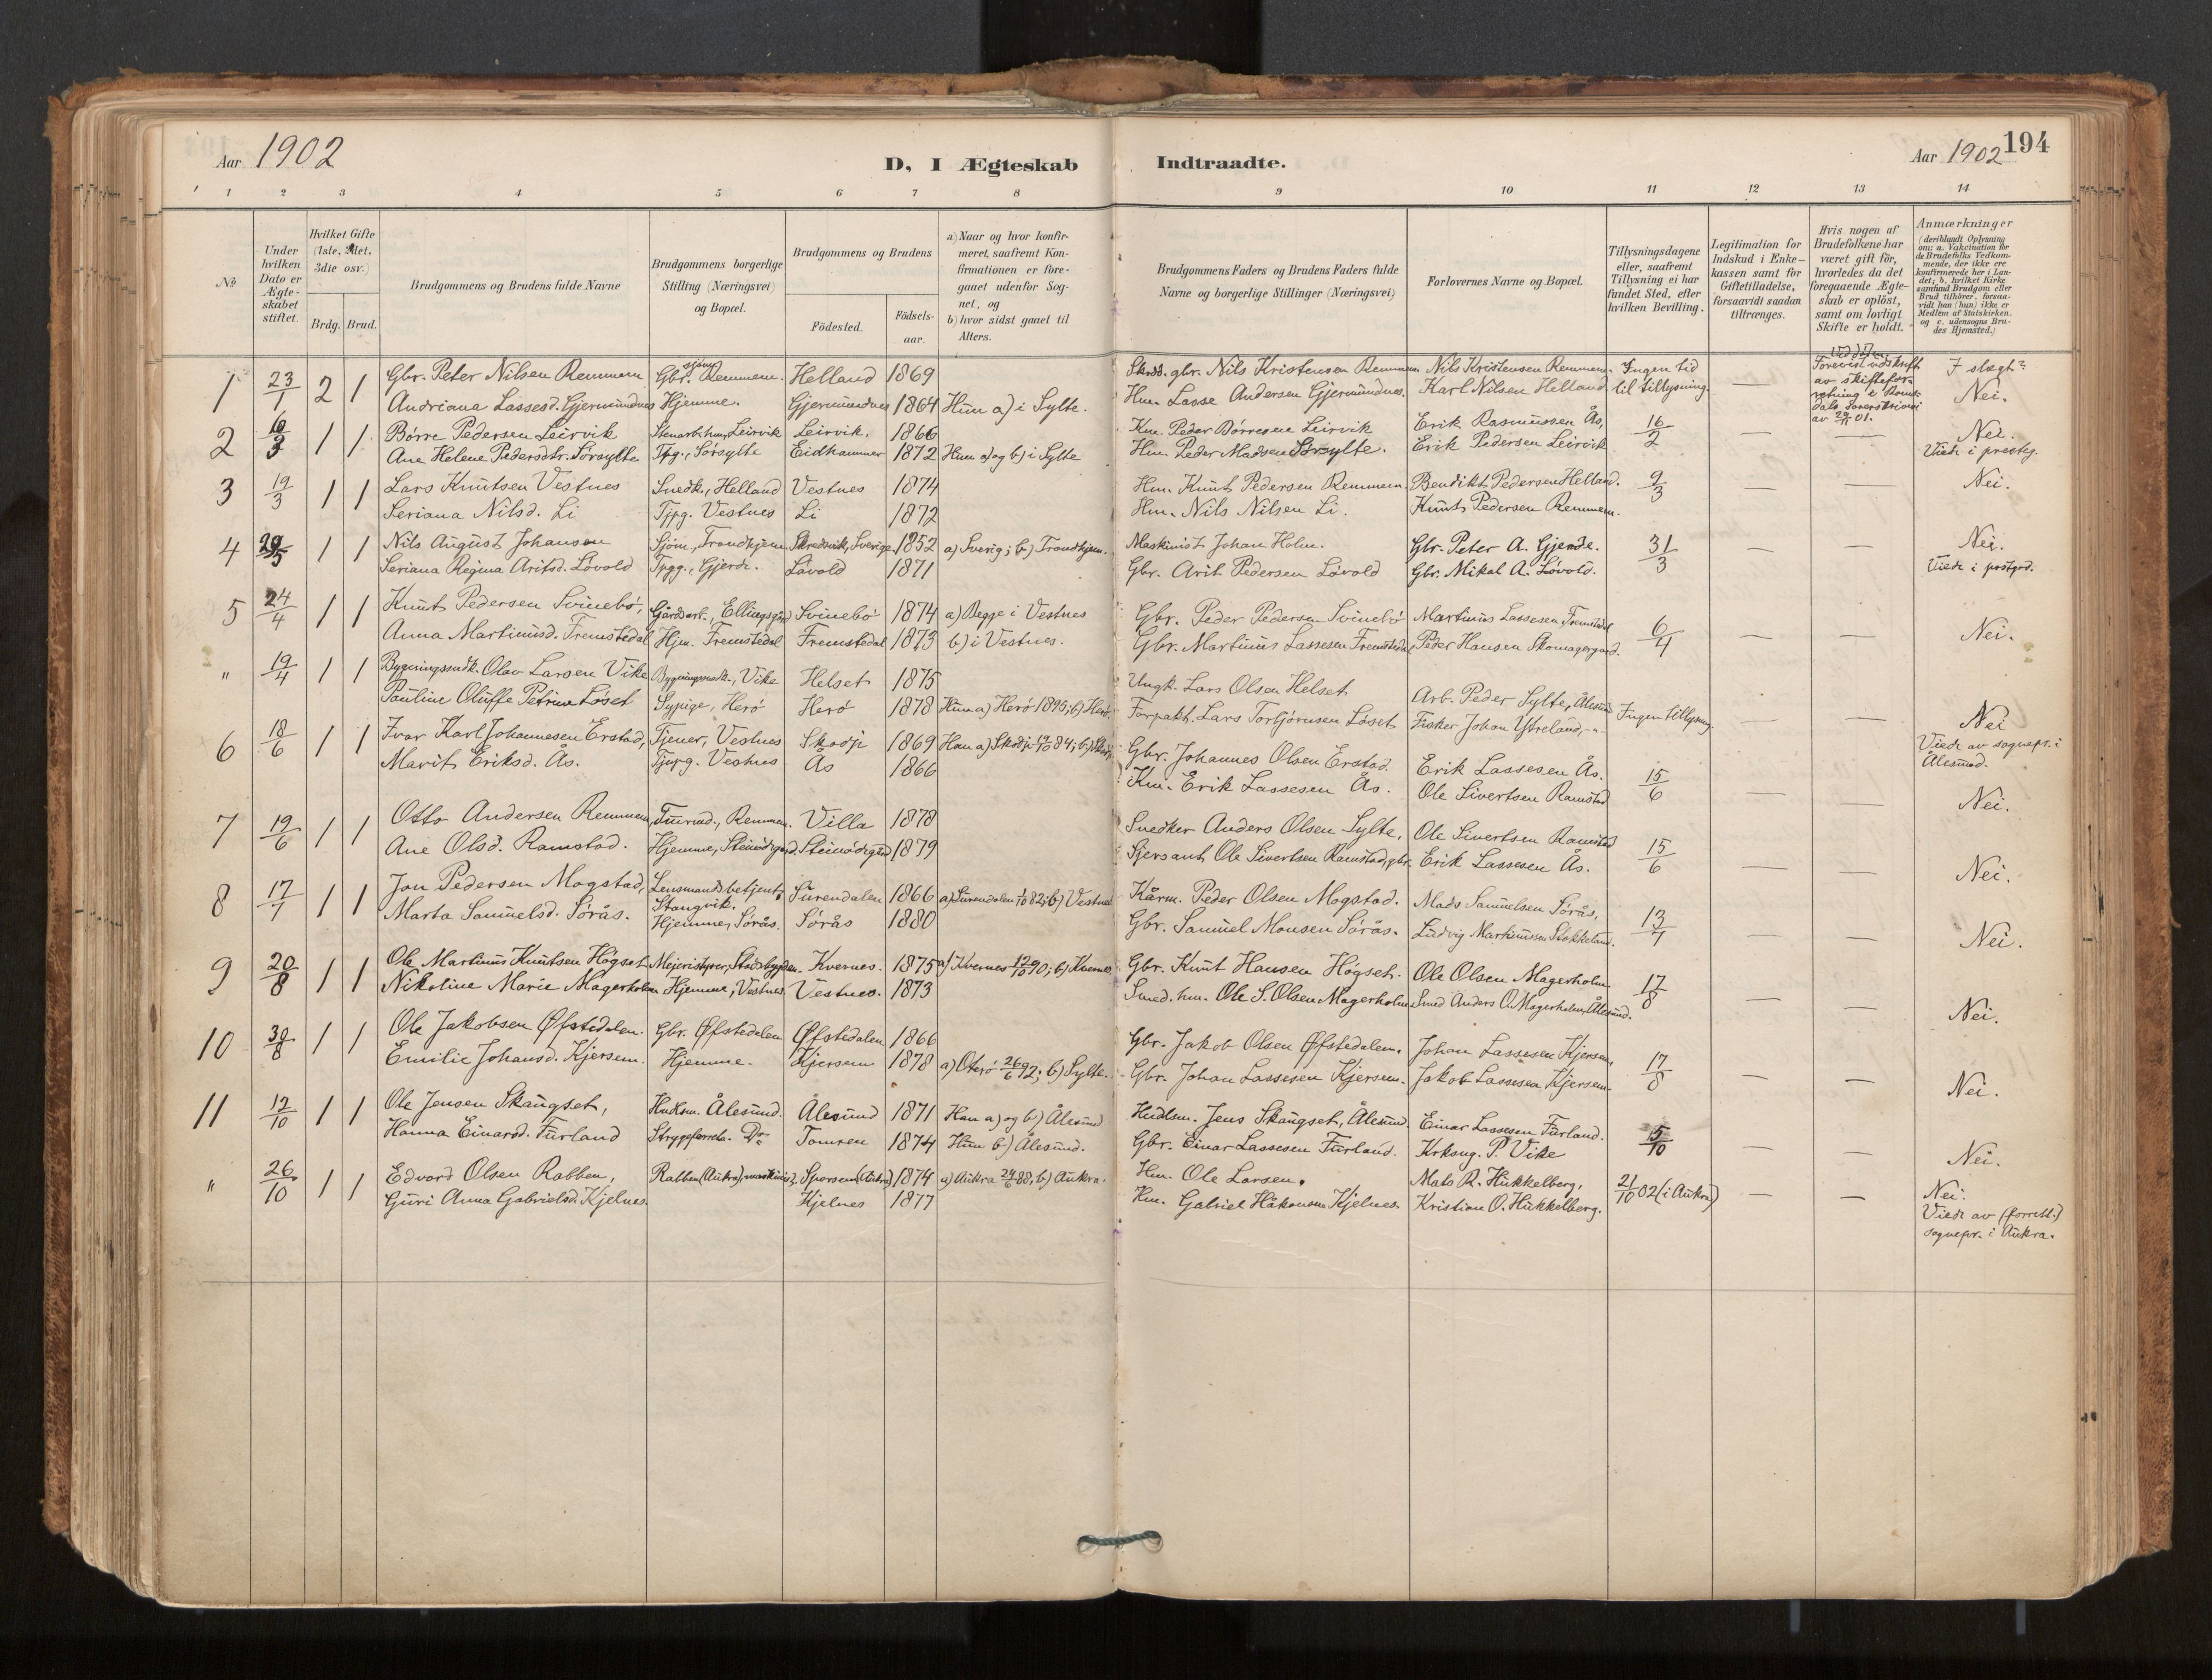 Aar 1902
D, I Ægteskab Indtraadte.
Aar 1902
194
1 2 3 4 5 6 7 8 9 10 11 12 13 14
№
Under hvilken Dato er Ægteskabet stiftet.
Hvilket Gifte (1ste, 2det, 3die osv.)
Brdg. Brud.
Brudgommens og Brudens fulde Navne
Brudgommens borgerlige Stilling (Næringsvei) og Bopæl.
Brudgommens og Brudens
Födested.
Födsels-aar.
a) Naar og hvor konfirmeret, saafremt Konfirmationen er foregaaet udenfor Sognet, og
b) hvor sidst gaaet til Alters.
Brudgommens Faders og Brudens Faders fulde Navne og borgerlige Stillinger (Næringsvei)
Forlovernes Navne og Bopæl.
Tillysningsdagene eller, saafremt Tillysning ei har fundet Sted, efter hvilken Bevilling.
Legitimation for Indskud i Enkekassen samt for Giftetilladelse, forsaavidt saadan tiltrænges.
Hvis nogen af Brudefolkene har været gift för, hvorledes da det foregaaende Ægteskab er oplöst, samt om lovligt Skifte er holdt.
Anmærkninger
(deriblandt Oplysning om: a. Vakcination for de Brudefolks Vedkommende, der ikke ere konfirmerede her i Landet; b. hvilket Kirkesamfund Brudgom eller Brud tilhörer, forsaavidt han (hun) ikke er Medlem af Statskirken. og c. udensogns Brudes Hjemsted.)
1 23/1 2 1 Gbr. Peter Nilsen Remmem Gbr. Remmem. Helland 1869 Nils Kristensen Remmem Nils Kristensen Remmem. Ingen tid — Forevist udskrift I slægt?
Andriana Lassesd. Gjermundnes Hjemme. Gjermundnes 1864 Hun a) i Sylte. Hm. Lasse Andersen Gjermundnes. Karl Nilsen Helland til tillysning. av skiftefor- Nei.
2 1 1 Børre Pedersen Leirvik Leirvik Leirvik. 1866 Km. Peder Børresen Leirvik Erik Rasmussen Ås, 16/2 — — Nei.
Ane Helene Pedersdtr. Sørsylte Tpg., Sørsylte Eidhammer 1872 Hun a) og b) i Sylte Hm. Peder Madsen Sørsylte. Erik Pedersen Leirvik Viede i præsteg.
3 19/3 1 1 Lars Knutsen Vestnes Snedk., Helland Vestnes 1874 Hm. Knut Pedersen Remmem. Bendikt Pedersen Helland. 9/3 — — Nei.
Seriana Nilsd. Li Tjpg. Vestnes Li 1872 Hm. Nils Nilsen Li. Knut Pedersen Remmem.
4 1 1 Nils August Johansen Sjøm., Trondhjem Skredsvik, Sverige. 1852 a) Sverig; b) Trondhjem. Maskinist Johan Holm. Gbr. Peter A. Gjerde. 31/3 — — Nei.
Seriana Regina Aritsd. Løvold Tpgg., Gjerde. Løvold 1871 Gbr. Arit Pedersen Løvold Gbr. Mikal A. Løvold. Viede i prstgrd.
5 24/4 1 1 Knut Pedersen Svinebø, Gårdsarb., Ellingsgård Svinebø 1874 a) Begge i Vestnes Gbr. Peder Pedersen Svinebø Martinus Lassesen Fremstedal 6/4 — — Nei.
Anna Martinusd. Fremstedal Hjm. Fremstedal Fremstedal 1873 b) i Vestnes. Gbr. Martinus Lassesen Fremstedal Peder Hansen Skomagergård.
" 19/4 1 1 Bygningssndk. Olav Larsen Vike Bygningssndk., Vike Helset 1875 Ungk. Lars Olsen Helset Arb. Peder Sylte, Ålesund Ingen tillysning. — — Nei
Pauline Oluffe Petrine Løset Sypige, Herø Herø 1878 Hun a) Herø 1895; b) Herø. Forpakt. Lars Torbjørnsen Løset Fisker Johan Ytreland, -"- Viede av sognepr. i Ålesund.
6 18/6 1 1 Ivar Karl Johannesen Erstad, Tjener, Vestnes Skodje 1869 Han a) Skodje 84; b) Skodje Gbr. Johannes Olsen Erstad. Erik Lassesen Ås. 15/6 — — Nei.
Marit Eriksd. Ås. Tjpg. Vestnes Ås 1866 Km. Erik Lassesen Ås. Ole Sivertsen Ramstad
7 19/6 1 1 Otto Andersen Remmem, Remmem. Villa 1878 Snedker Anders Olsen Sylte. Ole Sivertsen Ramstad 15/6 — — Nei.
Ane Olsd. Ramstad. Hjemme, Steinødegård. Steinødegård 1879 Sjersant Ole Sivertsen Ramstad, gbr. Erik Lassesen Ås.
8 17/7 1 1 Jon Pedersen Mogstad, Lensmandsbetjent, Stangvik. Surendalen 1866 a) Surendalen 1/10 82; b) Vestnes Kårm. Peder Olsen Mogstad. Mads Samuelsen Sørås, 13/7 — — Nei.
Marta Samuelsd. Sørås. Hjemme, Sørås. Sørås 1880 Gbr. Samuel Monsen Sørås. Ludvig Martinussen Stokkeland.
9 20/8 1 1 Ole Martinus Knutsen Høgset Mejeristyrer, Stadsbygden Kvernes. 1875 a) Kvernes 12/10 90; b) Kvernes Gbr. Knut Hansen Høgset. Ole Olsen Magerholm 17/8 — — Nei.
Nikoline Marie Magerholm Hjemme, Vestnes. Vestnes. 1873 Smed. hm. Ole S. Olsen Magerholm. Smed Anders O. Magerholm, Ålesund.
10 1 1 Ole Jakobsen Øfstedalen. Gbr. Øfstedalen Øfstedalen 1866 Gbr. Jakob Olsen Øfstedalen. Johan Lassesen Kjersem, 17/8 — — Nei.
Emilie Johansd. Kjersem. Hjemme. Kjersem 1878 a) Oterø 26/6 92; b) Sylte. Gbr. Johan Lassesen Kjersem. Jakob Lassesen Kjersem.
11 12/10 1 1 Ole Jensen Skaugset, Ålesund. Ålesund 1871 Han a) og b) Ålesund Hndlsm. Jens Skaugset, Ålesund. Einar Lassesen Furland. 5/10 — — Nei.
Hanna Einarsd. Furland Do. Tomren 1874 Hun b) Ålesund. Gbr. Einar Lassesen Furland. Krksng. P. Vike
" 26/10 1 1 Edvard Olsen Rabben, Rabben (Aukra), maskinist, (Aukra) 1874 a) Aukra 24/6 88, b) Aukra. Hm. Ole Larsen. Mats R. Hukkelberg, 21/10 02 (i Aukra) — — Nei.
Guri Anna Gabrielsd. Kjelnes. Kjelnes 1877 Hm. Gabriel Håkonsen Kjelnes. Kristian O. Hukkelberg. Viede av (forrett.) sognepr. i Aukra.